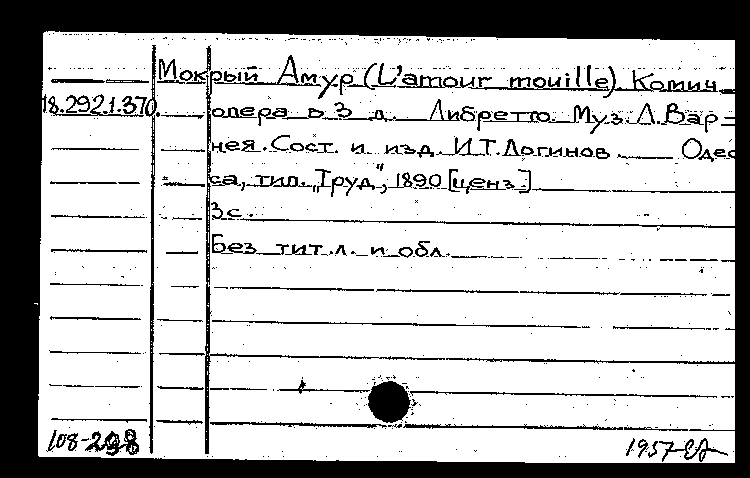 Мокрый Амур (L'amour mouille). Комич.
18.292.1.370. опера в 3 д. Либретто. Муз. Л. Вар=
нея. Сост. и изд. И.Т. Логинов. Одес
са, тип. „Труд", 1890 [ценз.]
3 с.
Без тит. л. и обл.
108-298
1957